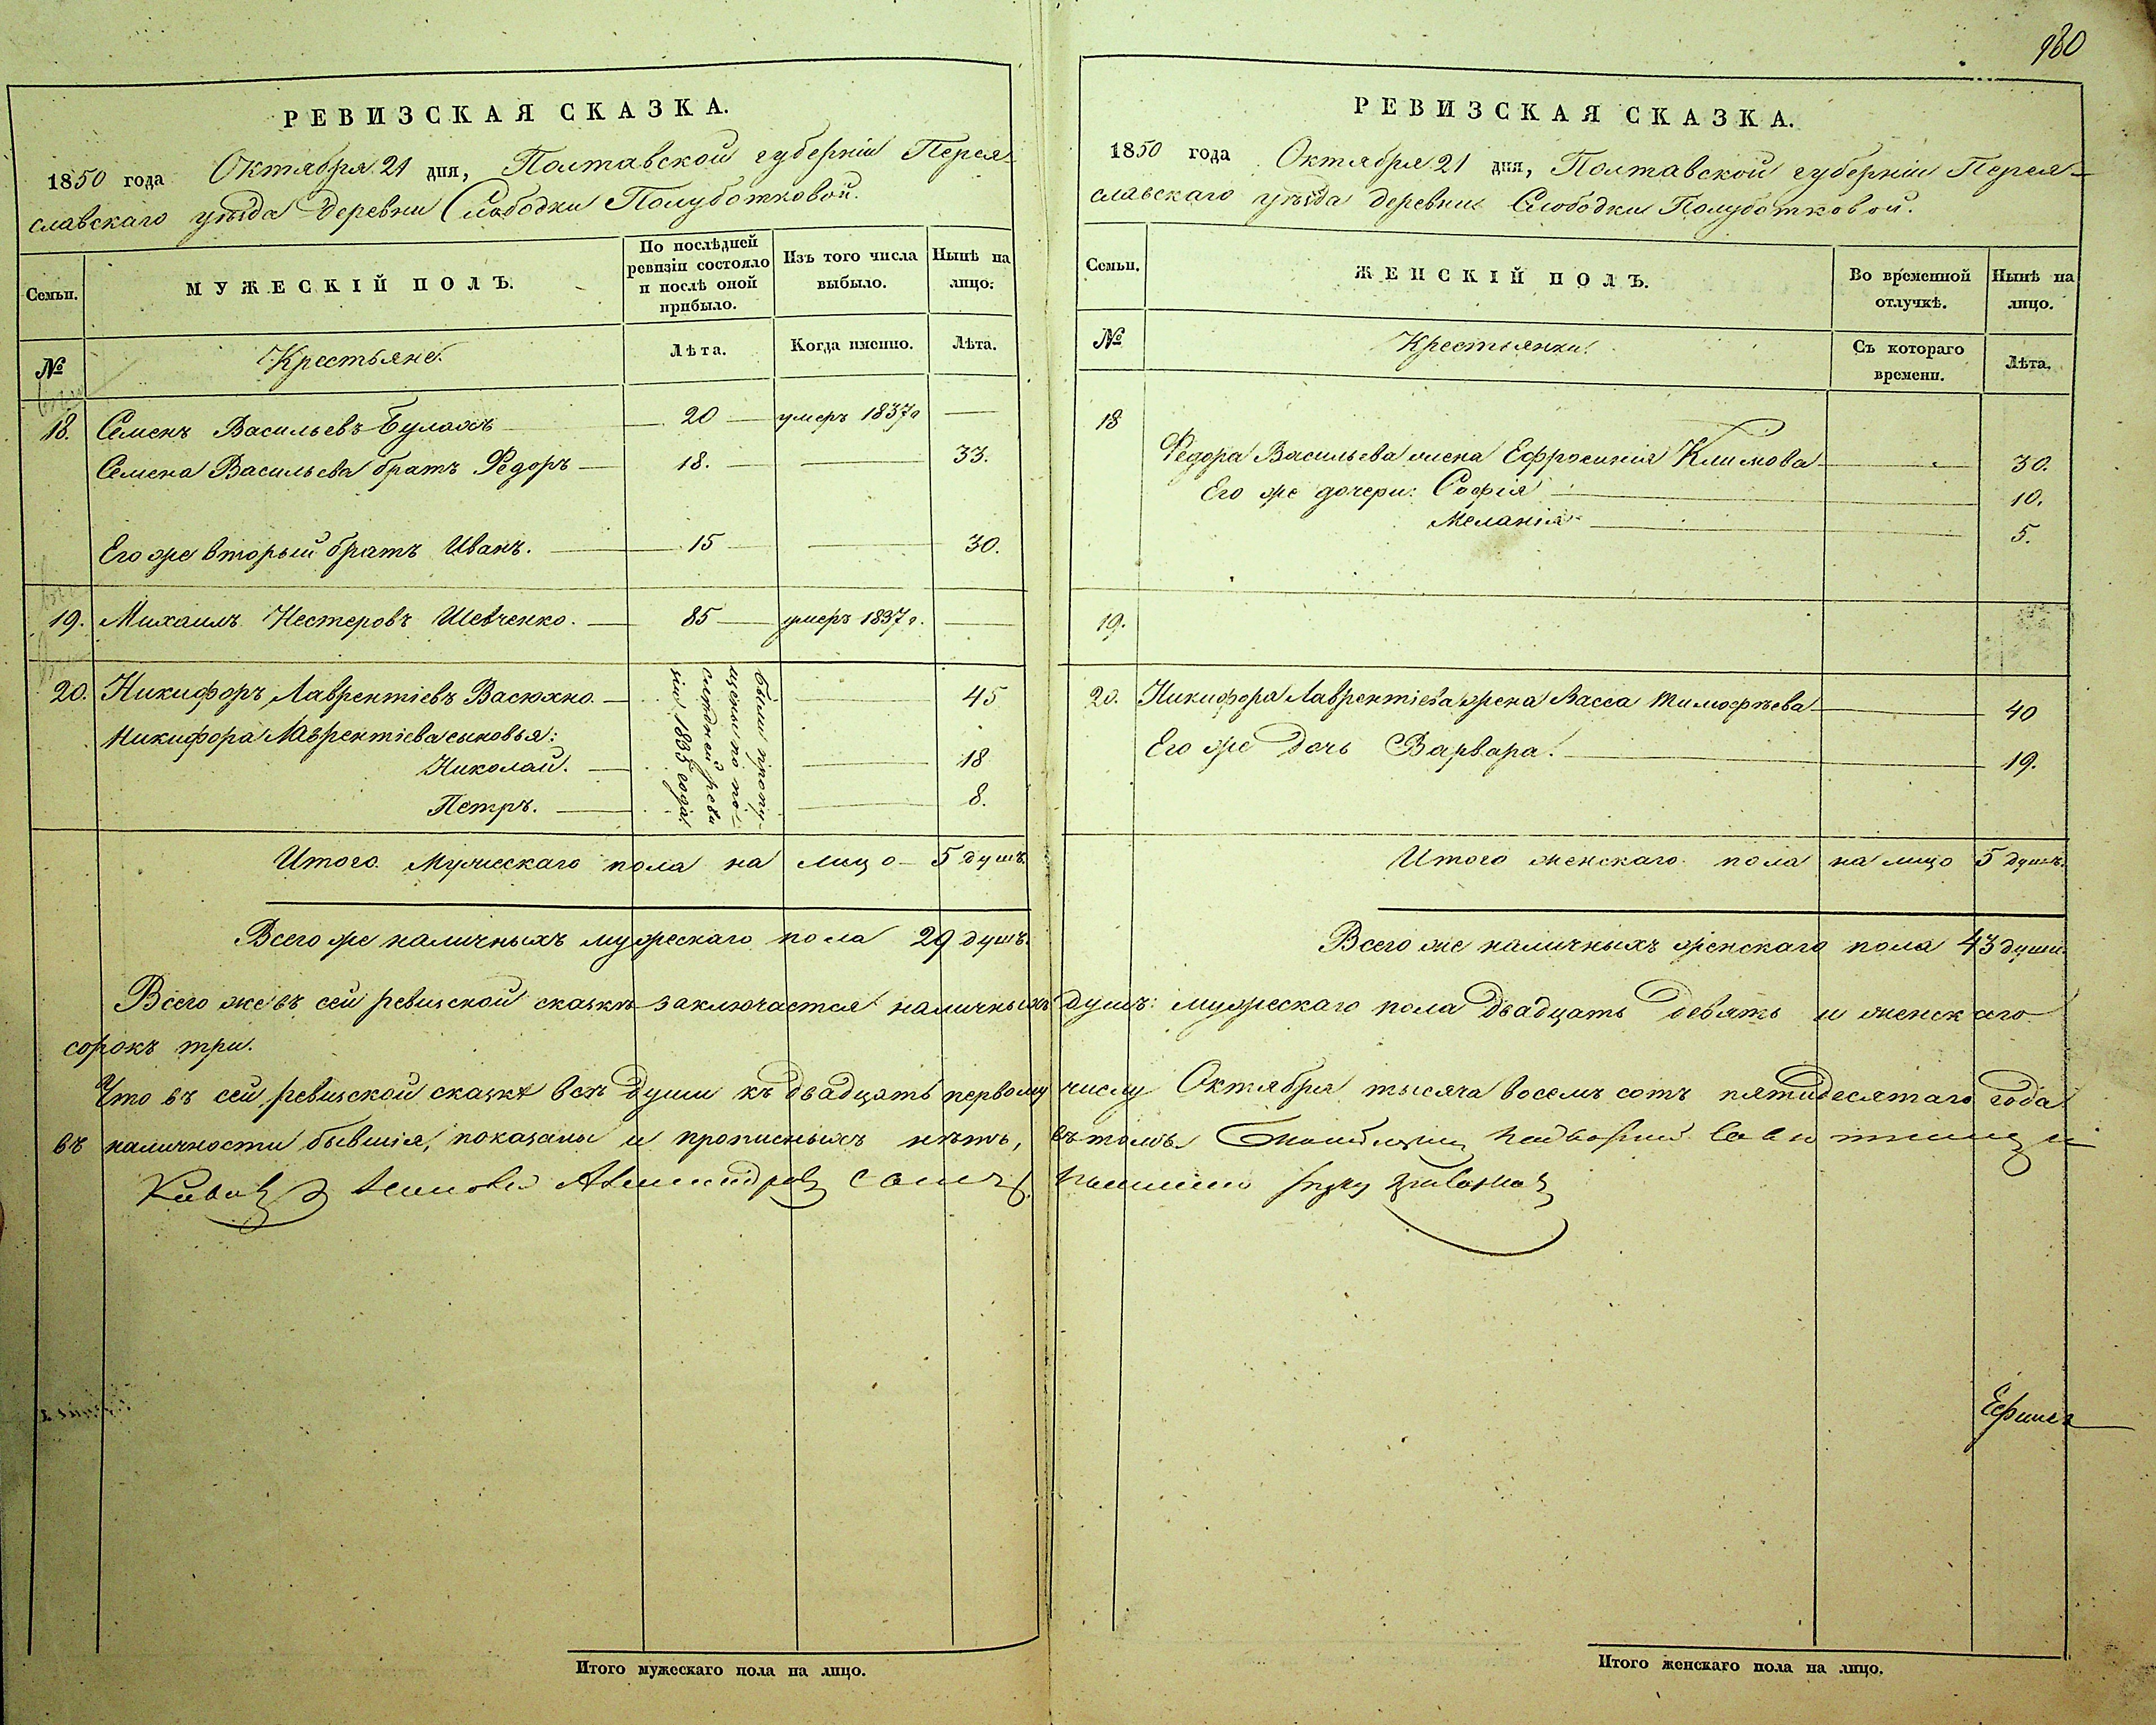 980
РЕВИЗСКАЯ СКАЗКА.
1850 года Октября 21 дня, Полтавской губерніи Перея-
славскаго уѣзда Деревни Слободки Полуботковой.
Семьи.
МУЖЕСКІЙ ПОЛЪ.
По послѣдней
ревизіи состояло
и послѣ оной
прибыло.
Изъ того числа
выбыло.
Нынѣ на
лицо.
№
Крестьяне.
Лѣта.
Когда именно.
Лѣта.
18. Семенъ Васильевъ Булахъ 20 умеръ 1837 г
Семена Васильева братъ Федоръ 18. 33.
Его же вторый братъ Иванъ. 15 30.
19. Михаилъ Нестеровъ Шевченко. 85 умеръ 1837 г.
20. Никифоръ Лаврентіевъ Васюхно. 45
Никифора Лаврентіева сыновья:
Николай. 18
Петръ. 8.
были пропу-
щены по по-
слѣдней реви
зіи 1835 года.
Итого мужескаго пола на лицо 5 душъ.
Всего же наличныхъ мужескаго пола 29 душъ.
РЕВИЗСКАЯ СКАЗКА.
1850 года Октября 21 дня, Полтавской губерніи Перея-
славскаго уѣзда деревни Слободки Полуботковой.
Семьи.
ЖЕНСКІЙ ПОЛЪ.
Во временной
отлучкѣ.
Нынѣ на
лицо.
№
Крестьянки.
Съ котораго
времени.
Лѣта.
18
Федора Васильева жена Ефросинія Климова 30.
Его же дочери: Софія 10.
Меланія 5.
19.
20. Никифора Лаврентіева жена Васса Тимофѣева 40
Его же Дочь Варвара. 19.
Итого женскаго пола на лицо 5 душъ.
Всего же наличныхъ женскаго пола 43 души.
Всего же въ сей ревизской сказкѣ заключается наличныхъ душъ: мужескаго пола Двадцать Девять и женскаго
сорокъ три.
Что въ сей ревизской сказкѣ всѣ Души къ Двадцать первому числу Октября тысяча восемь сотъ пятидесятаго года
въ наличности бывшія, показаны и прописныхъ нѣтъ, въ томъ
Итого мужескаго пола на лицо.
Итого женскаго пола на лицо.